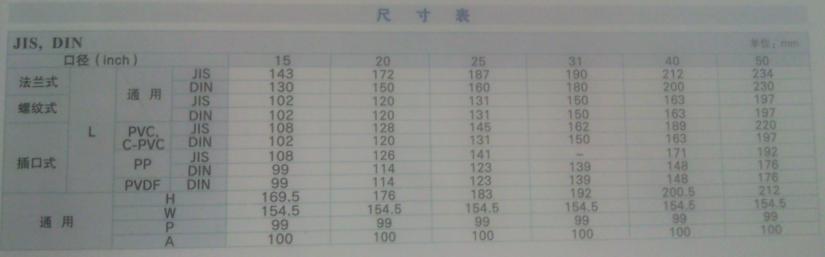 尺 寸 表
JIS, DIN 单位：mm
口径（inch） 15 20 25 31 40 50
法兰式 L 通 用 JIS 143 172 187 190 212 234
DIN 130 150 160 180 200 230
螺纹式 JIS 102 120 131 150 163 197
DIN 102 120 131 150 163 197
插口式 PVC, C-PVC JIS 108 128 145 162 189 220
DIN 102 120 131 150 163 197
PP JIS 108 126 141 – 171 192
DIN 99 114 123 139 148 176
PVDF DIN 99 114 123 139 148 176
通 用 H 169.5 176 183 192 200.5 212
W 154.5 154.5 154.5 154.5 154.5 154.5
P 99 99 99 99 99 99
A 100 100 100 100 100 100